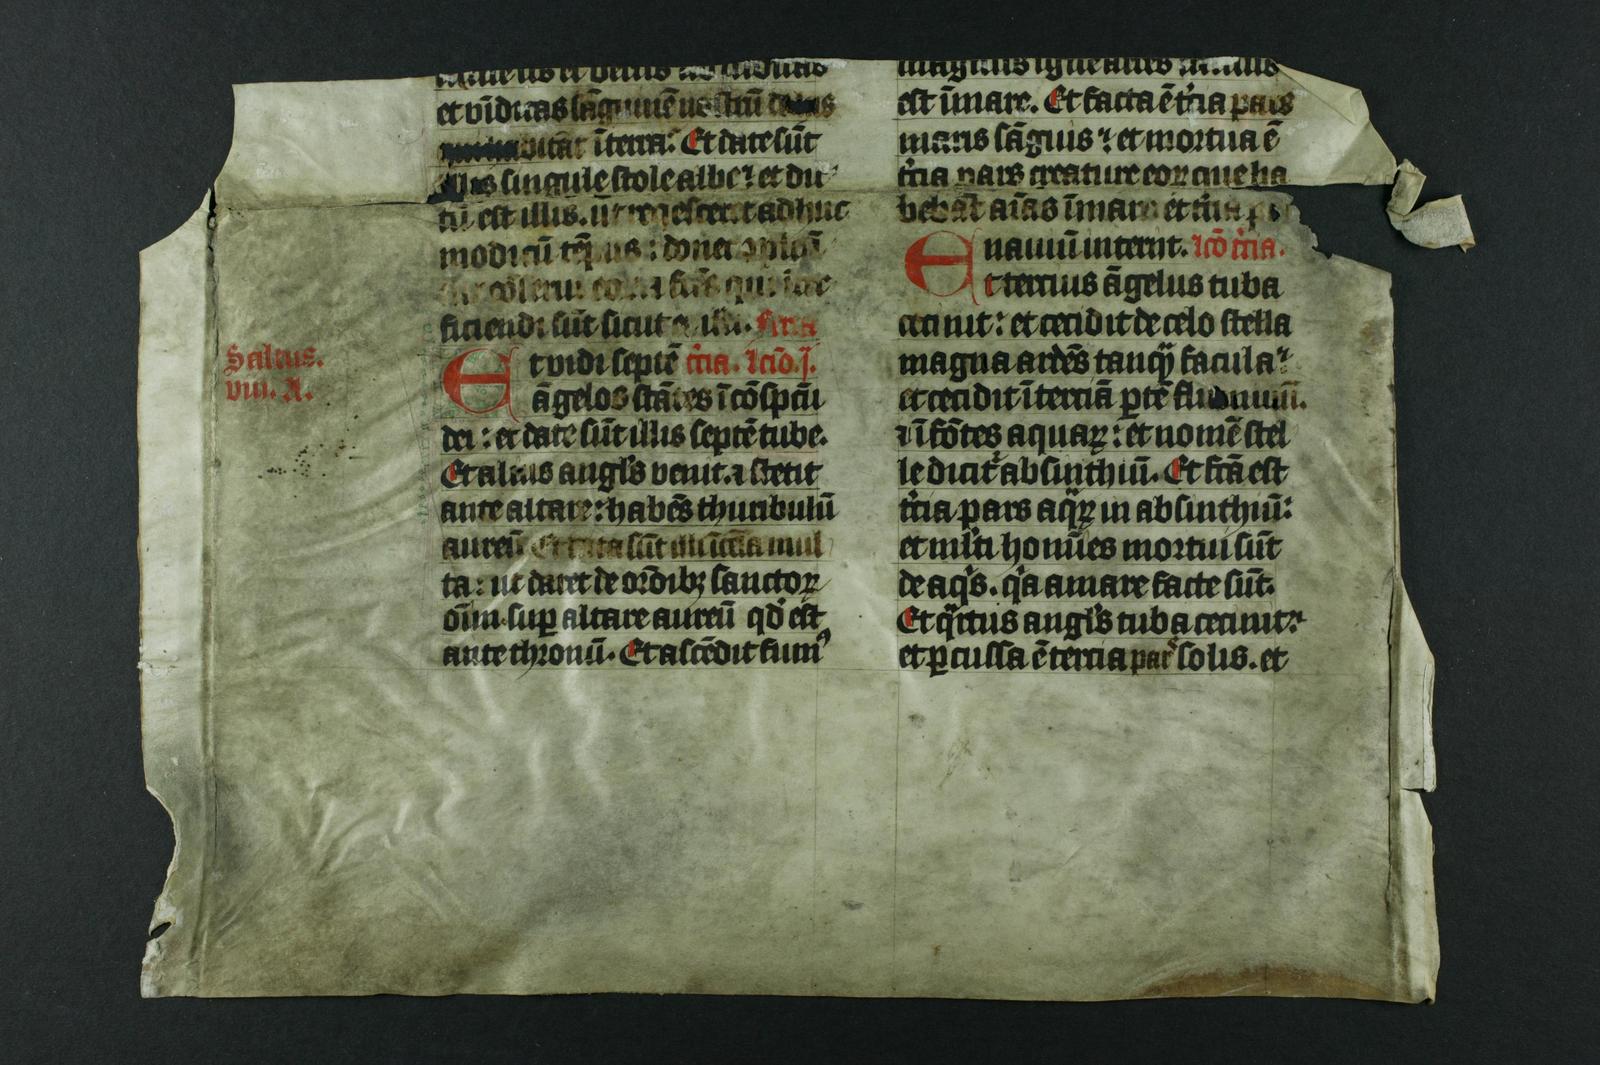 et vīdicas sāguinē nostrū
habitāt ī terra: Et date sūt
illis singule stole albe: et dic
tū est illis. ut reqescerēt adhuc
modicū tēpus: donec
cōserui eorū et frēs qui inte
ficiendi sūt sicut et illi. Feria
Et vidi septē t̄cia. lc̄io. j.
Saltus.
viii. A.
āgelos stātes ī cōspc̄u
dei: et date sūt illis septē tube.
Et alius angl's venit. ⁊ stetit
ante altare: habēs thuribulū
aureū Et data sūt illi īcēsa mul
ta: ut daret de or̄dibꝫ sanctoꝝ
oīm. suꝑ altare aureū qd̛ est
ante thronū. Et ascēdit fumꝰ
est ī mare. Et facta ē t̄cia pars
maris sāguis: et mortua ē
t̄cia pars creature eoꝝ que ha
bebāt aīas ī mari et t̄cia p
nauiū interiit. lc̄o t̄cia.
Et tercius āgelus tuba
cecinit: et cecidit de celo stella
magna ardēs tanqꝫ facula:
et cecidit ī terciā ꝑtē fluminū.
⁊ ī fōtes aquaꝝ: et nomē stel
le dicit̛ absinthiū. Et fcā est
t̄cia pars aqꝝ in absinthiū:
et ml'ti homīes mortui sūt
de aqͥs. qͥa amare facte sūt.
Et qͣrtus angl's tuba cecinit:
et ꝑcussa ē tercia pars solis. et